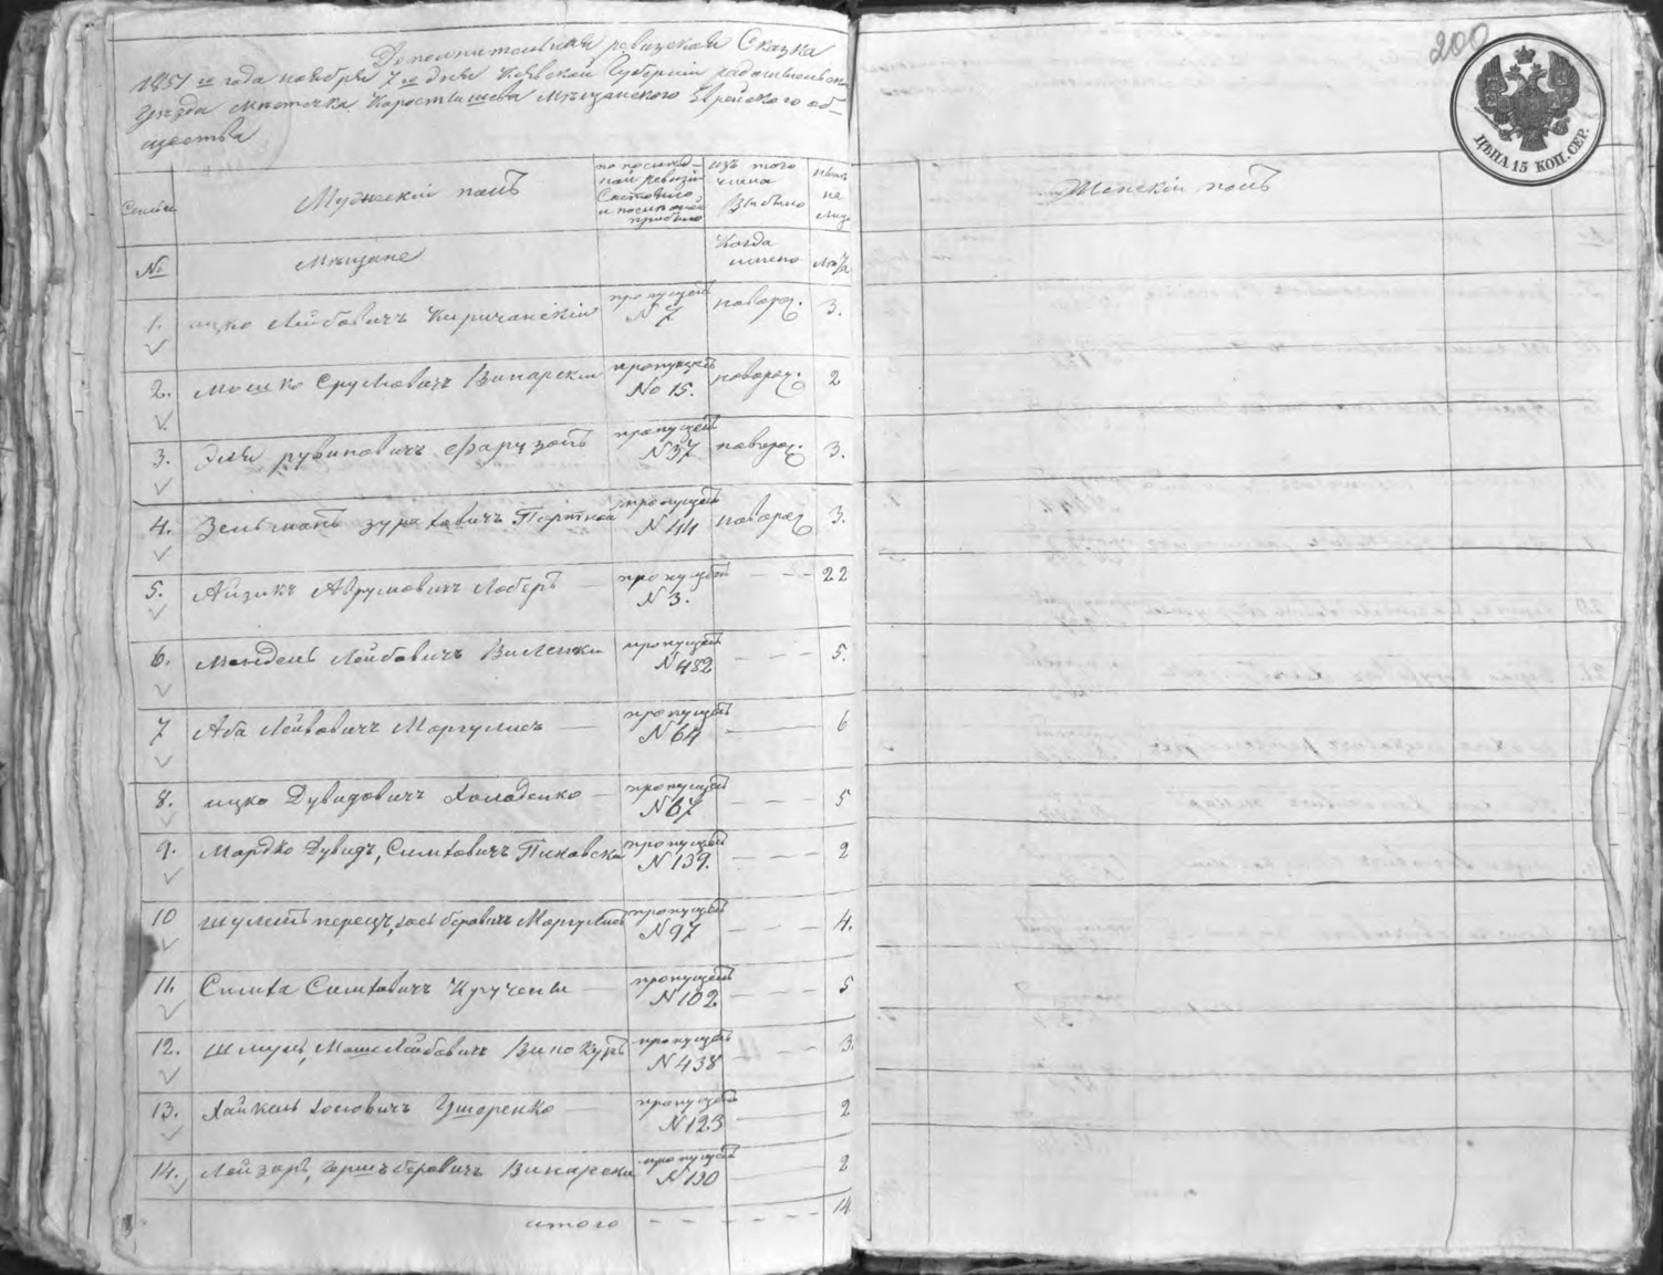 Дополнительная ревизская Сказка
1851 го года ноября 7 го дня Киевской Губернии радомысльскаго
Уезда местечка Коростышева Мещанского Еврейского об-
щества
Семьи
Мужеский полъ
по послед-
ней ревизіи
Состояло
и после оной
прибыло
изъ того
числа
Выбыло
ныне
на
лицо
№
Мещане
Когда
имено
лета
1. ицко Лейбовичъ Киричанскій пропущенъ N 7 новорож. 3.
2. мошко Срулевичъ Винарскій пропущенъ No 15. новорож. 2
3. Эля рувиновичъ пропущенъ N 37 новорож. 3.
4. Зельманъ Портной пропущенъ N 44 новорож 3.
5. Айзикъ Аврумовичъ Лоберъ пропущенъ N 3. 22
6. Мендель Лейбовичъ Виленки пропущенъ N 482 5.
7 Аба Лейбовичъ Моргулисъ пропущенъ N 64 6
8. ицко Дувидовичъ Холоденко пропущенъ N 67 5
9. Мордко Дувидъ, Симховичъ пропущенъ N 139. 2
10 Шулимъ перецъ, беровичъ Моргулисъ пропущенъ N 97 4.
11. Симха Симховичъ пропущенъ N 102 5
12. Шмуль, Моше Лейбовичъ Винокуръ пропущенъ N 438 3.
13. Хайкель Иосіовичъ Ушоренко пропущенъ N 123 2
14. Лейзоръ, гершъ беровичъ Винарски пропущенъ N 130 2
итого 14
200
Женскій полъ
ЦѢНА 15 КОП. СЕР.